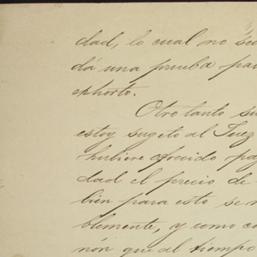 dad, lo cual no
dá una prueba
exhorto.
Otro tanto
estoy sugeto al Juez
hubiere ofrecido
dad el precio de
bien para esto se
blemente, y como
nón que al tiempo